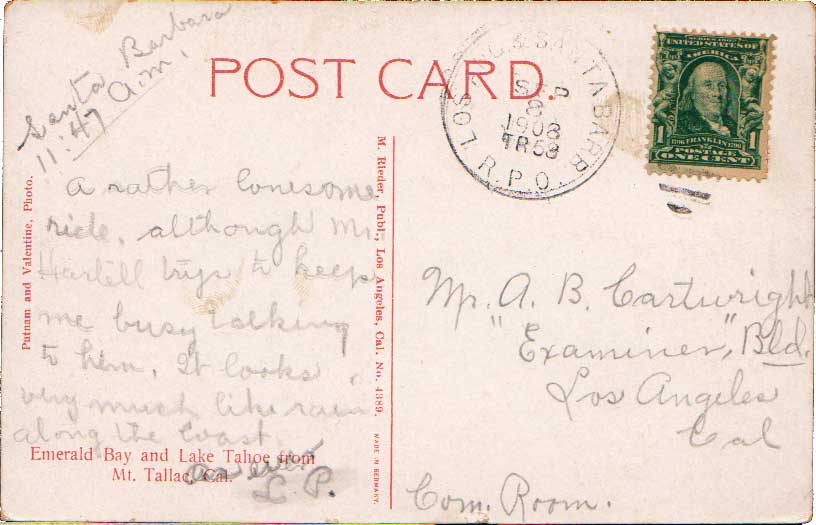 Santa Barbara
11:47 a.m.
POST CARD.
LOS ANG. & SANTA BARB.
SEP
6
1908
TR 53
R.P.O.
SERIES 1902
UNITED STATES OF
AMERICA
1 1706 FRANKLIN 1790 1
POSTAGE
ONE CENT
A rather lonesome
ride, although Mr.
Hartell trys to keep
me busy talking
to him. It looks
very much like rain
along the coast.
as ever
L. P.
Putnam and Valentine, Photo.
Emerald Bay and Lake Tahoe from
Mt. Tallac, Cal.
M. Rieder, Publ., Los Angeles, Cal. No. 4389.
MADE IN GERMANY.
Mr. A. B. Cartwright
"Examiner," Bld.
Los Angeles
Cal
Com. Room.